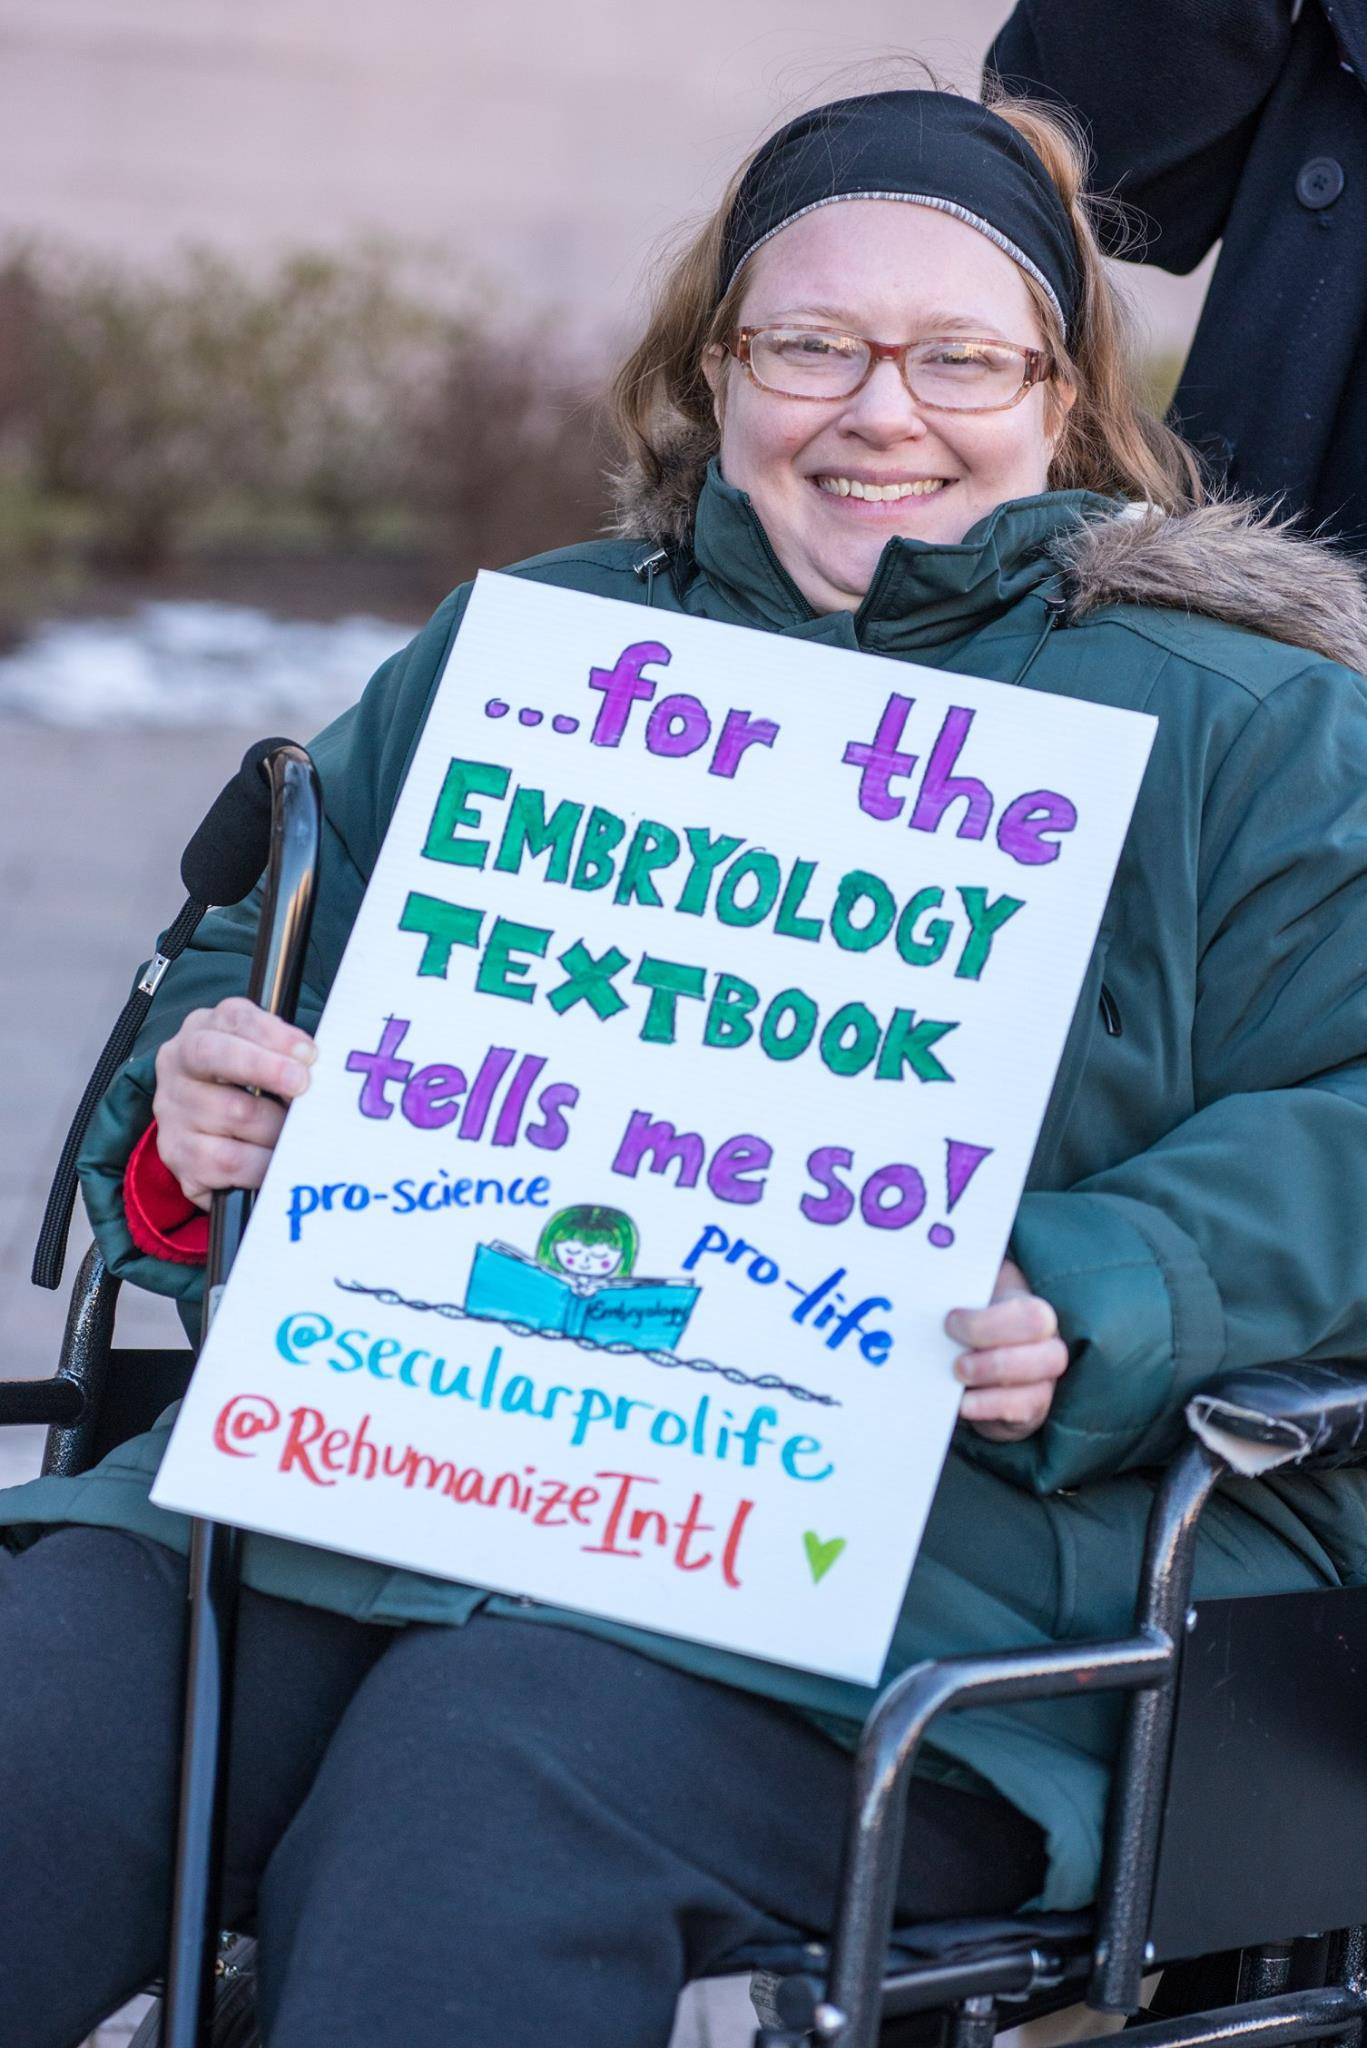 ...for the
EMBRYOLOGY
TEXTBOOK
tells me so!
pro-science
pro-life
Embryology
@secularprolife
@RehumanizeIntl